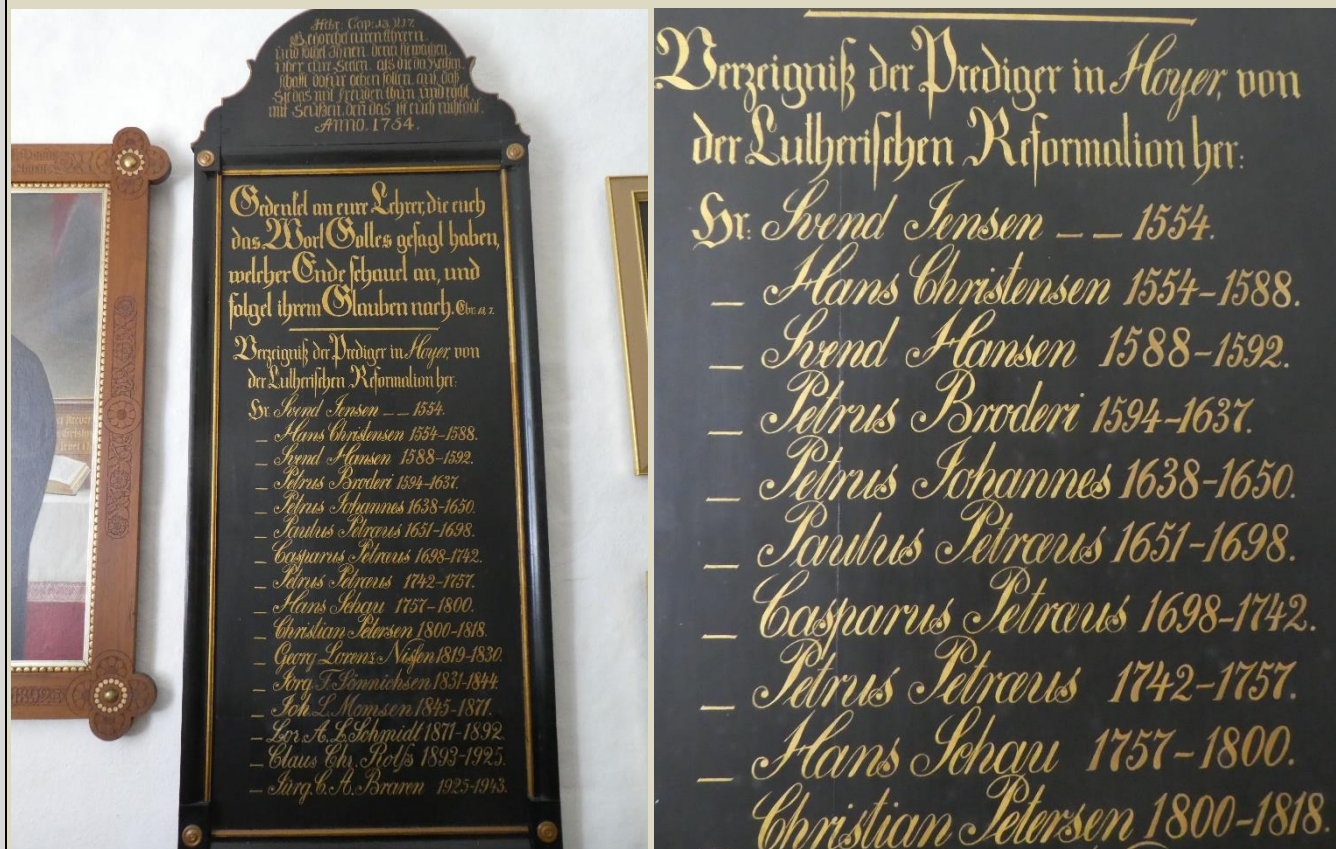 Hebr: Cap: 13. V. 17.
Gehorchet euren Lehrern
und folget Ihnen, denn sie wachen
über eure Seelen, als die da Rechen-
schaft dafür geben sollen, auf daß
Sie das mit Freuden thun, und nicht
mit Seufzen, den das ist euch nicht gut.
ANNO. 1754.
Gedenket an eure Lehrer, die euch
das Wort Gottes gesagt haben,
welcher Ende schauet an, und
folget ihrem Glauben nach. Ebr: 13. 7.
Verzeigniß der Prediger in Hoyer, von
der Lutherischen Reformation her:
Hr: Svend Jensen _ _ 1554.
_ Hans Christensen 1554-1588.
_ Svend Hansen 1588-1592.
_ Petrus Broderi 1594-1637.
_ Petrus Johannes 1638-1650.
_ Paulus Petræus 1651-1698.
_ Casparus Petræus 1698-1742.
_ Petrus Petræus 1742-1757.
_ Hans Schau 1757-1800.
_ Christian Petersen 1800-1818.
_ Georg Lorenz Nissen 1819-1830.
_ Jörg. T. Sönnichsen 1831-1844.
_ Joh. L. Momsen 1845-1871.
_ Lor. A. L. Schmidt 1871-1892.
_ Claus Chr. Rolfs 1893-1925.
_ Jürg. C. A. Braren 1925-1943.
Verzeigniß der Prediger in Hoyer, von
der Lutherischen Reformation her:
Hr: Svend Jensen _ _ 1554.
_ Hans Christensen 1554-1588.
_ Svend Hansen 1588-1592.
_ Petrus Broderi 1594-1637.
_ Petrus Johannes 1638-1650.
_ Paulus Petræus 1651-1698.
_ Casparus Petræus 1698-1742.
_ Petrus Petræus 1742-1757.
_ Hans Schau 1757-1800.
Christian Petersen 1800-1818.